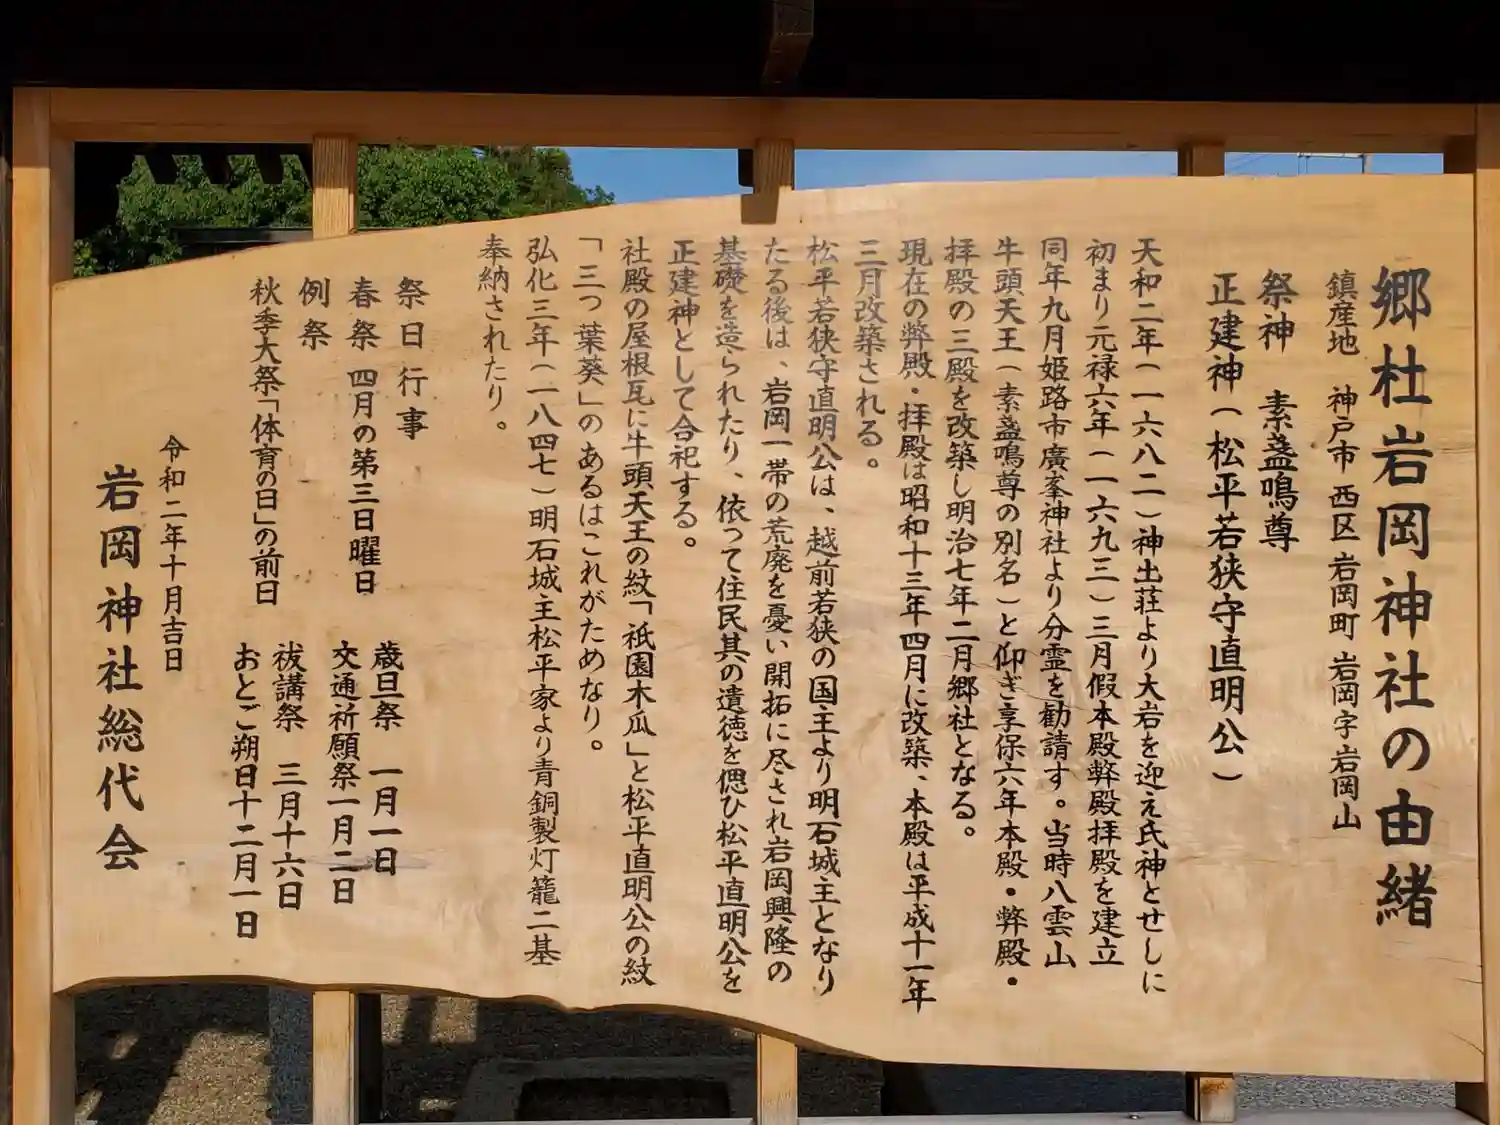 郷社岩岡神社の由緒
鎮座地 神戸市 西区 岩岡町 岩岡字岩岡山
祭神 素盞嗚尊
正建神(松平若狭守直明公)
天和二年(一六八二)神出荘より大岩を迎え氏神とせしに
初まり元禄六年(一六九三)三月假本殿弊殿拝殿を建立
同年九月姫路市廣峯神社より分霊を勧請す。当時八雲山
牛頭天王(素盞嗚尊の別名)と仰ぎ享保六年本殿・弊殿・
拝殿の三殿を改築し明治七年二月郷社となる。
現在の弊殿・拝殿は昭和十三年四月に改築、本殿は平成十一年
三月改築される。
松平若狭守直明公は、越前若狭の国主より明石城主となり
たる後は、岩岡一帯の荒廃を憂い開拓に尽され岩岡興隆の
基礎を造られたり、依って住民其の遺徳を偲ひ松平直明公を
正建神として合祀する。
社殿の屋根瓦に牛頭天王の紋「祇園木瓜」と松平直明公の紋
「三っ葉葵」のあるはこれがためなり。
弘化三年(一八四七)明石城主松平家より青銅製灯籠二基
奉納されたり。
祭日行事
春祭 四月の第三日曜日
例祭
秋季大祭「体育の日」の前日
歳旦祭 一月一日
交通祈願祭一月二日
祓講祭 三月十六日
おとご朔日十二月一日
令和二年十月吉日
岩岡神社総代会